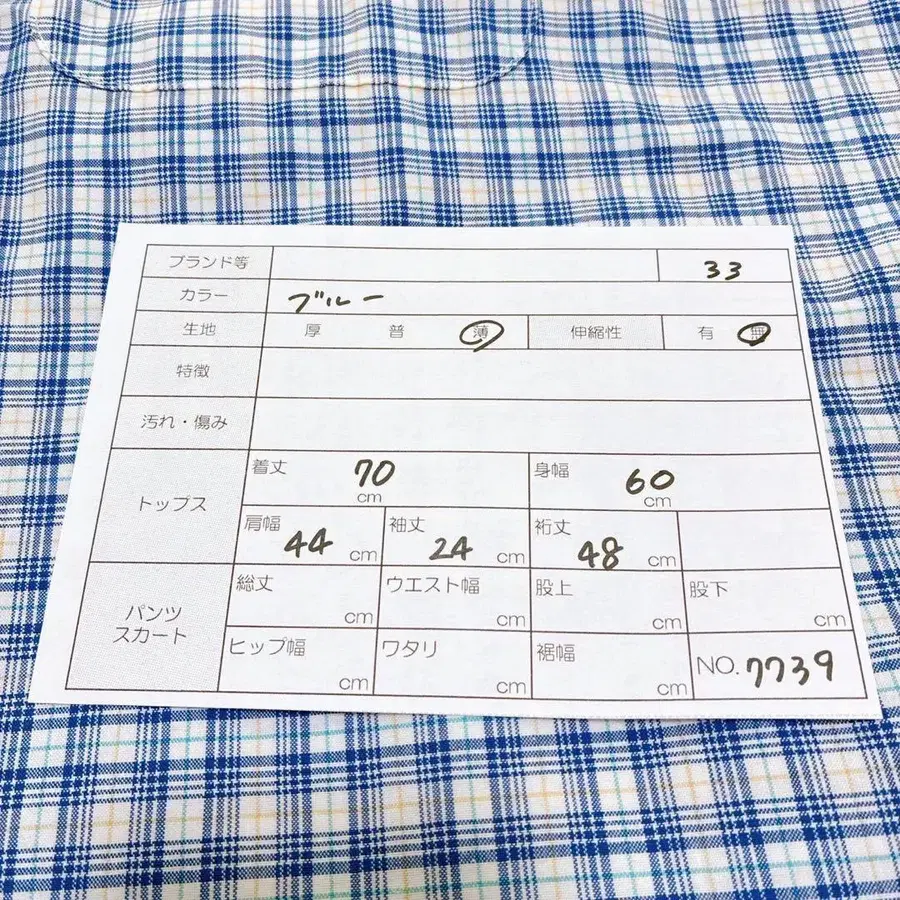 ブランド等 33
カラー ブルー
生地 厚 普 薄 伸縮性 有 無
特徴
汚れ・傷み
トップス
着丈 70 cm 身幅 60 cm
肩幅 44 cm 袖丈 24 cm 裄丈 48 cm
パンツ
スカート
総丈 cm ウエスト幅 cm 股上 cm 股下 cm
ヒップ幅 cm ワタリ cm 裾幅 cm NO. 7739